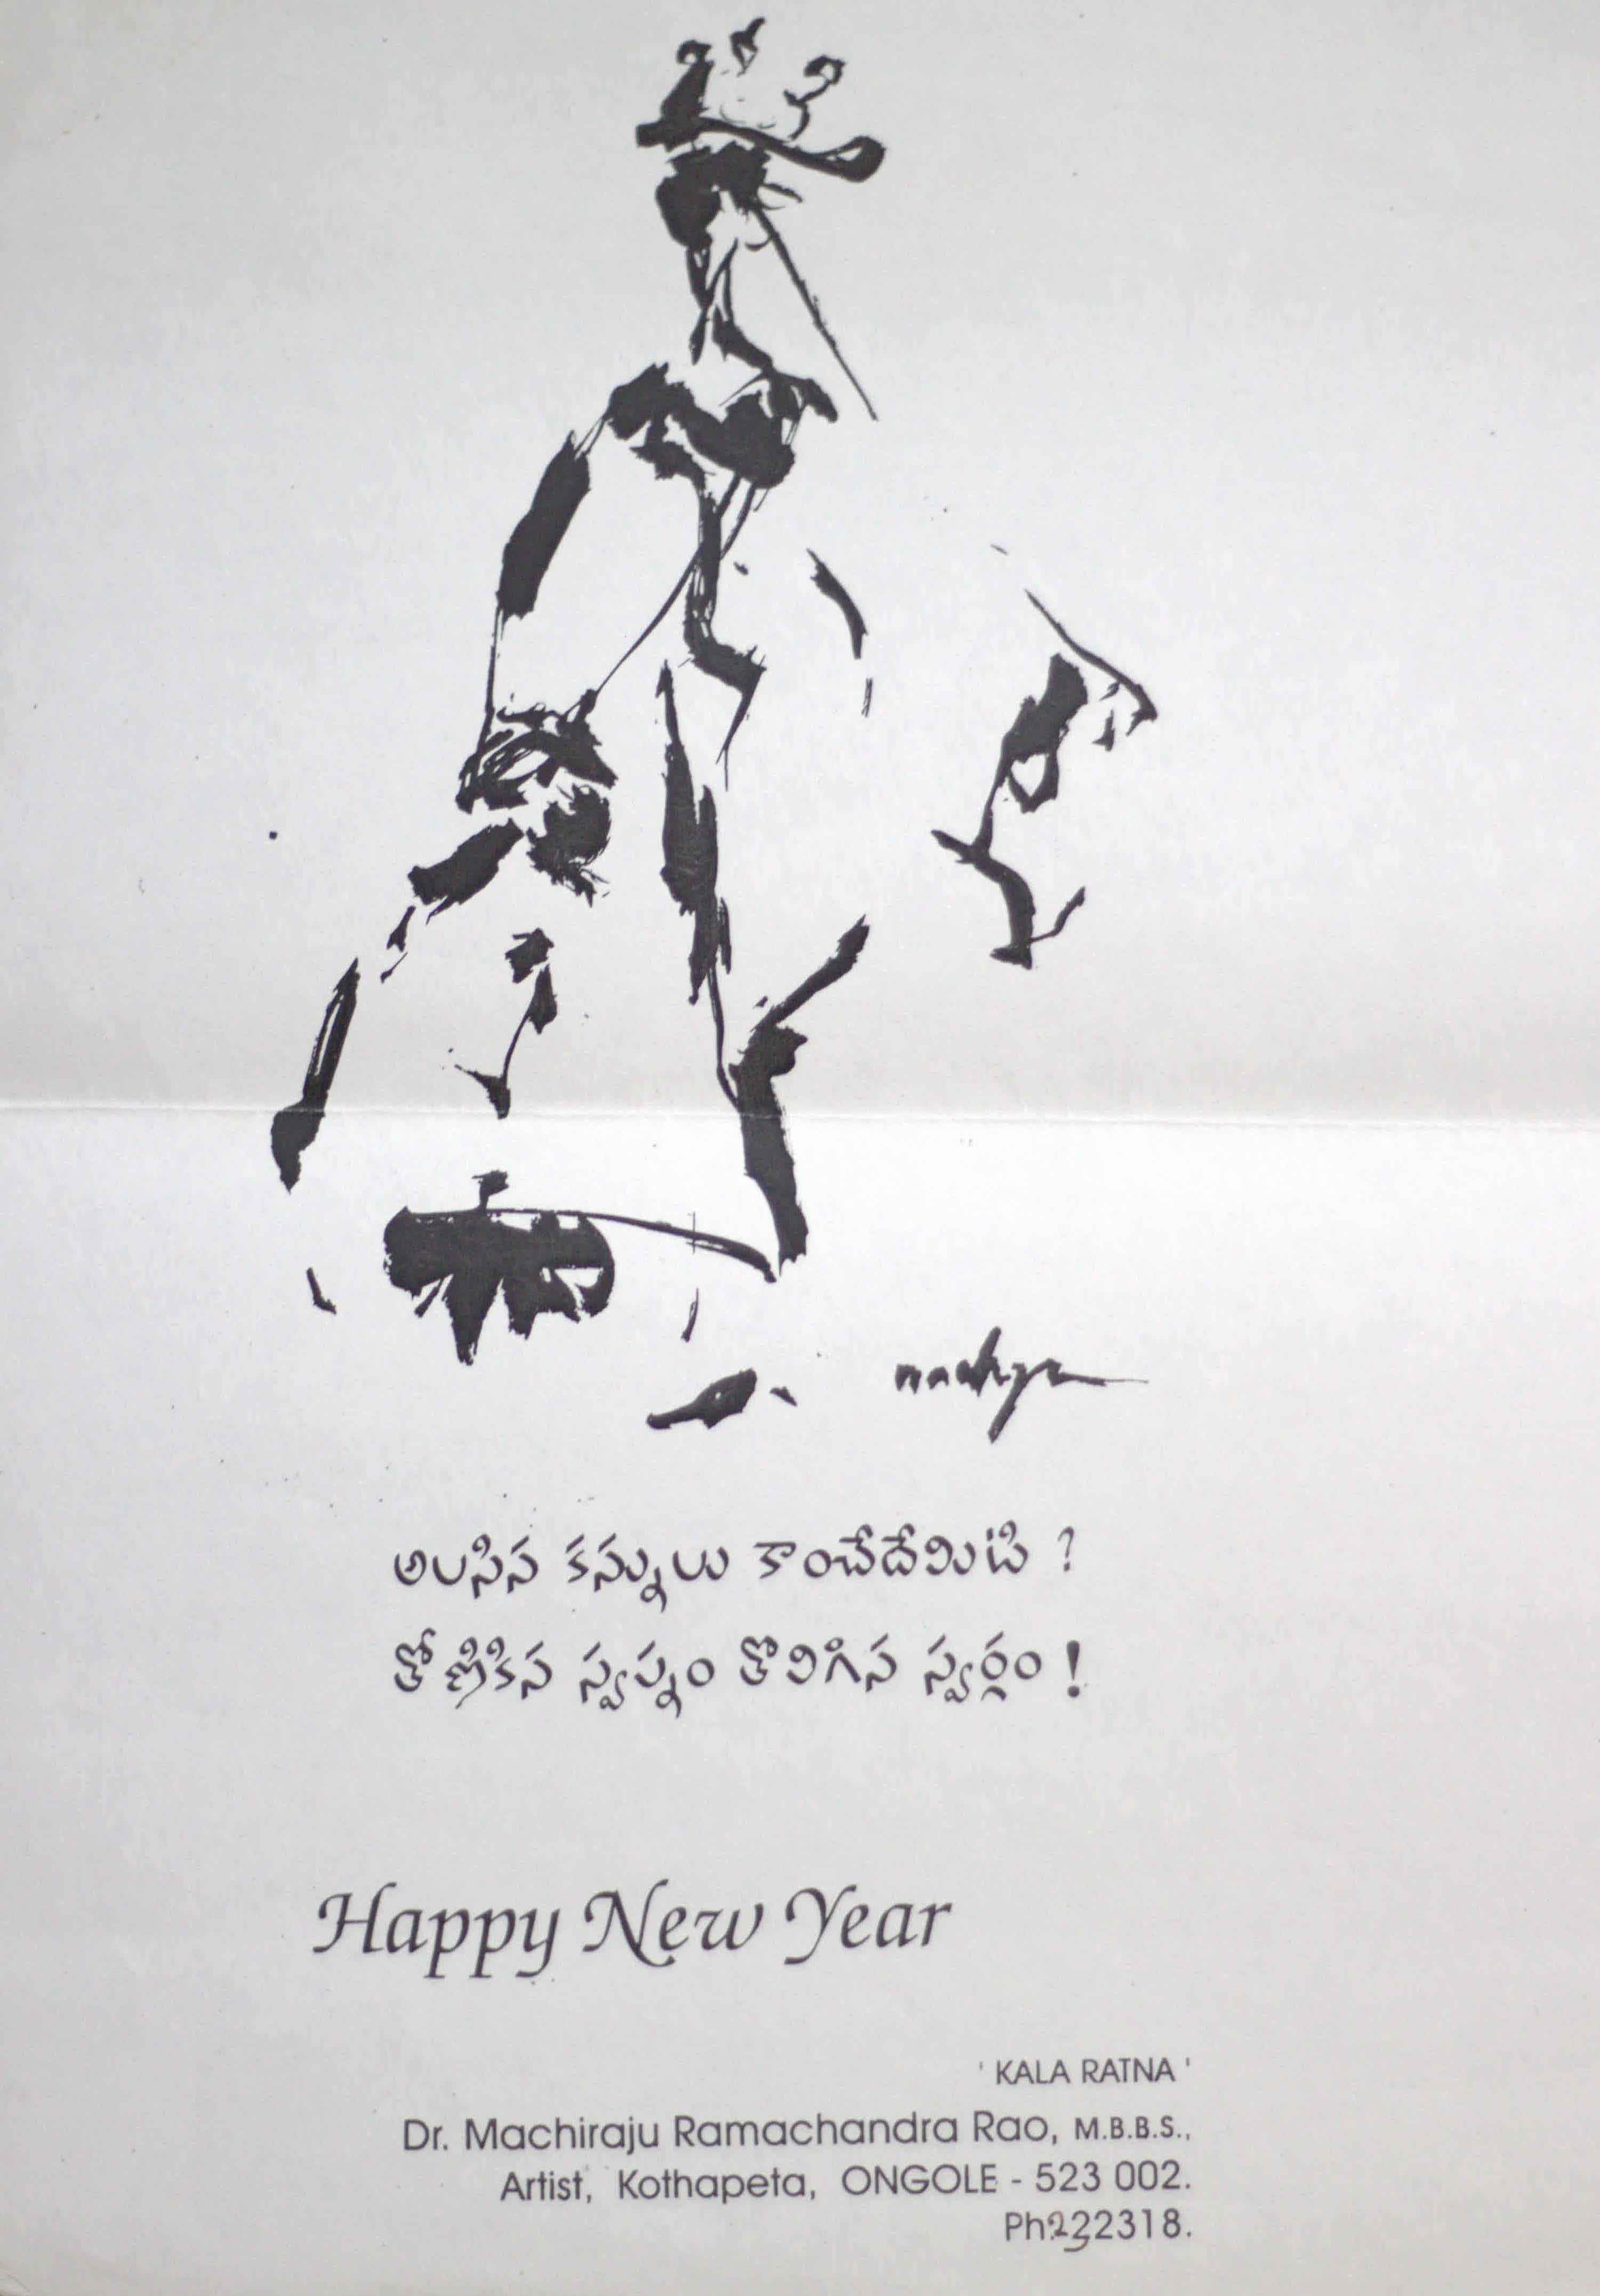 అలసిన కన్నులు కాంచేదేమిటి ?
తోణికిన స్వప్నం తొలిగిన స్వర్గం !
Happy New Year
' KALA RATNA '
Dr. Machiraju Ramachandra Rao, M.B.B.S.,
Artist, Kothapeta, ONGOLE - 523 002.